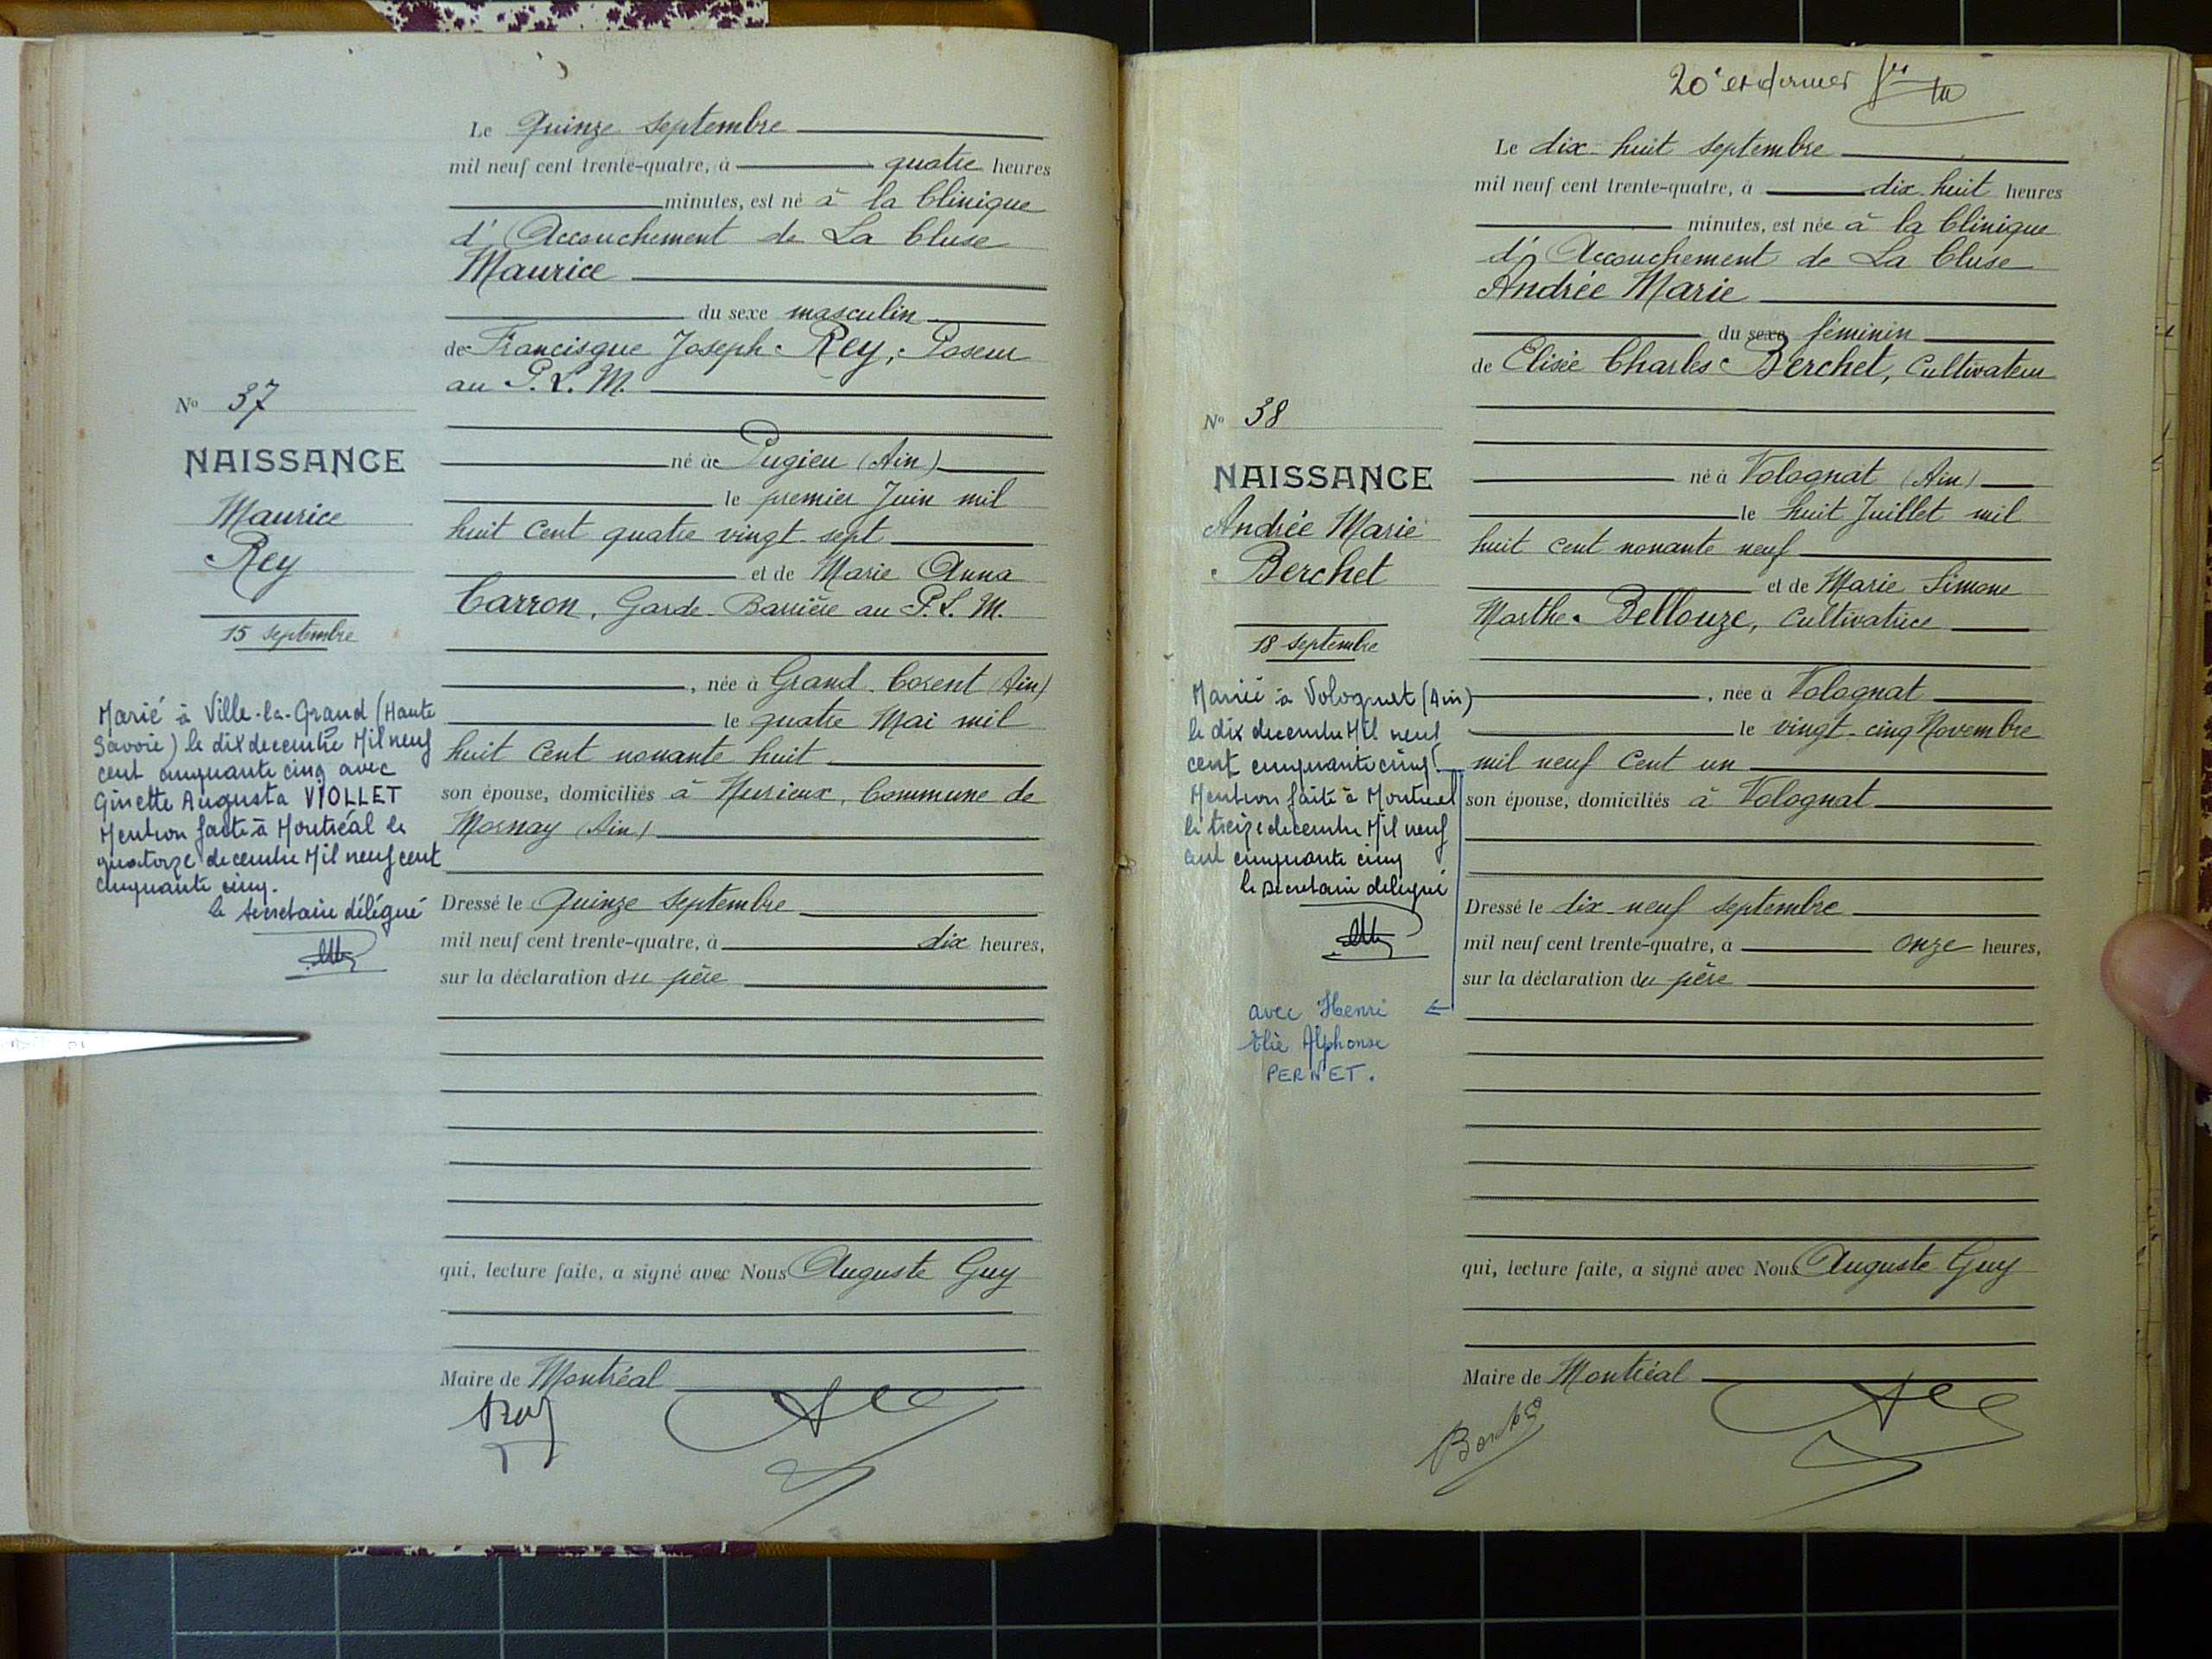 Le quinze septembre
mil neuf cent trente-quatre, à quatre heures
minutes, est né à la Clinique
d'Accouchement de La Cluse
Maurice
du sexe masculin
de Francisque Joseph Rey, Poseur
au P. L. M.
né à Pugieu (Ain)
le premier Juin mil
huit cent quatre vingt-sept
et de Marie Anna
Carron, Garde-Barrière au P. L. M.
, née à Grand-Corent (Ain)
le quatre Mai mil
huit cent nonante huit
son épouse, domiciliés à Nurieux, Commune de
Mornay (Ain)
Dressé le quinze septembre
mil neuf cent trente-quatre, à dix heures,
sur la déclaration du père
qui, lecture faite, a signé avec Nous Auguste Guy
Maire de Montréal
Rey
No 37
NAISSANCE
Maurice
Rey
15 septembre
Marié à Ville-la-Grand (Haute
Savoie) le dix decembre Mil neuf
cent cinquante cinq avec
Ginette Augusta VIOLLET
Mention faite à Montréal le
quatorze decembre Mil neuf cent
cinquante cinq.
le secretaire délégué
20e et dernier
Le dix-huit septembre
mil neuf cent trente-quatre, à dix-huit heures
minutes, est née à la Clinique
d'Accouchement de La Cluse
Andrée Marie
du sexe féminin
de Elisée Charles Berchet, Cultivateur
né à Volognat (Ain)
le huit Juillet mil
huit cent nonante neuf
et de Marie Simone
Marthe Bellouze, Cultivatrice
, née à Volognat
le vingt-cinq Novembre
mil neuf cent un
son épouse, domiciliés à Volognat
Dressé le dix-neuf septembre
mil neuf cent trente-quatre, à onze heures,
sur la déclaration du père
qui, lecture faite, a signé avec Nous Auguste Guy
Maire de Montréal
No 38
NAISSANCE
Andrée Marie
Berchet
18 septembre
Mariée à Volognat (Ain)
le dix decembre Mil neuf
cent cinquante cinq
Mention faite à Montreal
le treize decembre Mil neuf
cent cinquante cinq
le secretaire delegué
avec Henri
Elie Alphonse
PERNET.